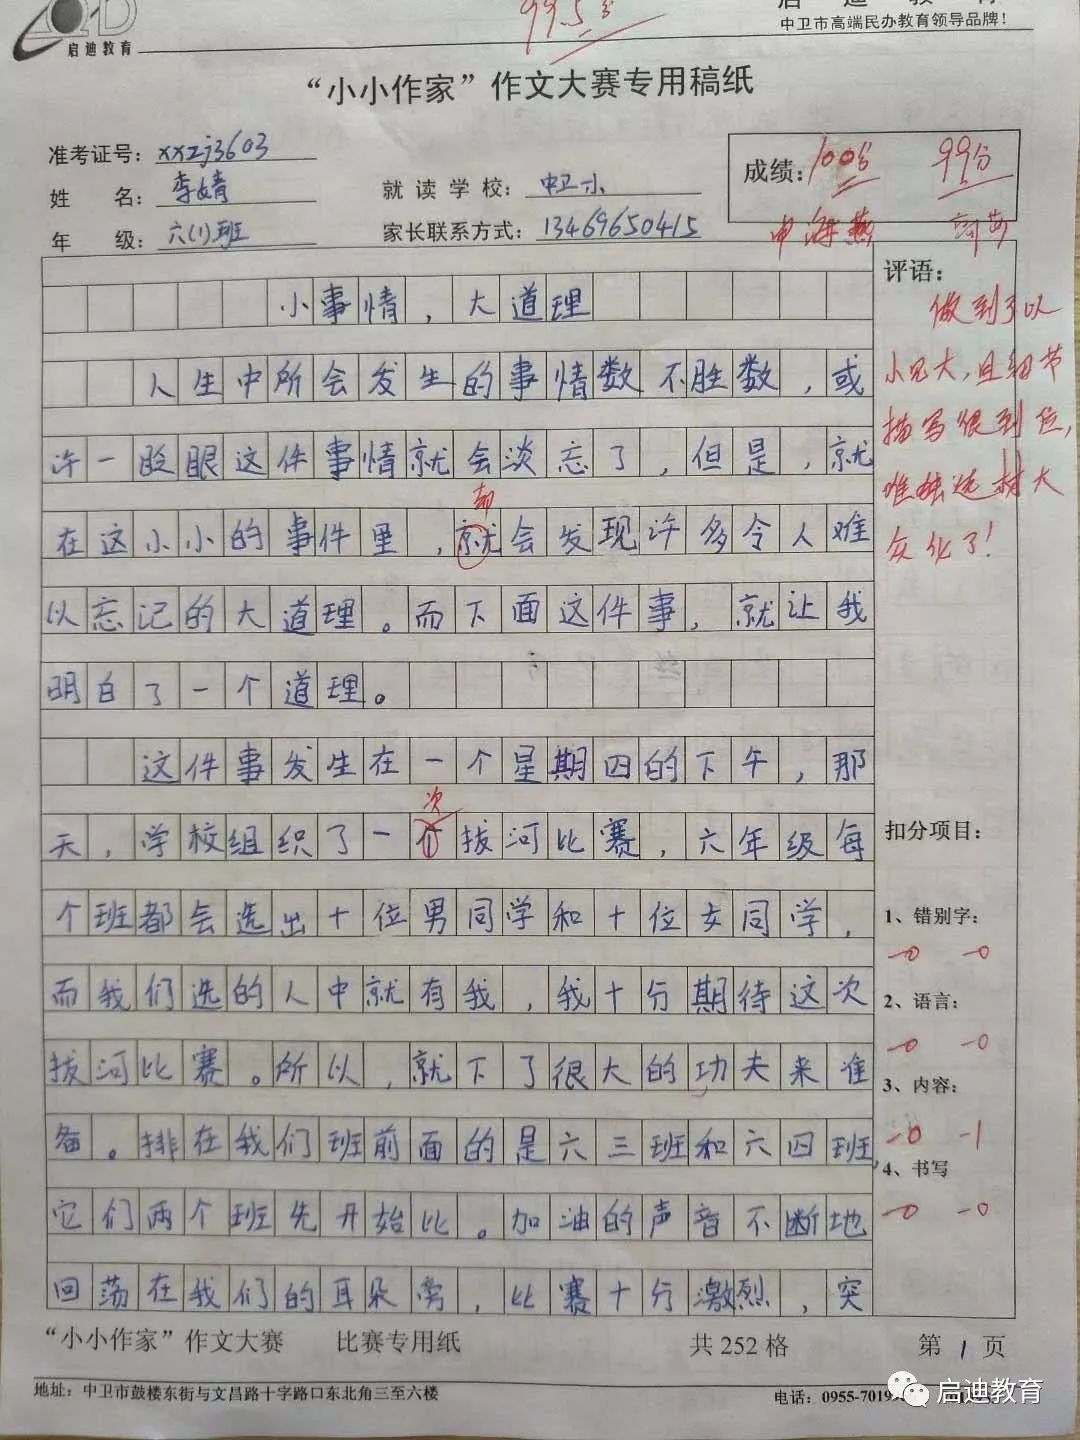 启迪教育
99.5分
启迪教育
中卫市高端民办教育领导品牌！
“小小作家”作文大赛专用稿纸
准考证号：xxzj3603
姓名：李婧
就读学校：中卫小
年级：六(1)班
家长联系方式：13469650415
成绩：100分 99分
申海燕
评语：
做到了以
小见大，且细节
描写很到位，
唯独选材大
众化了！
小事情，大道理
人生中所会发生的事情数不胜数，或
许一眨眼这件事情就会淡忘了，但是，就
在这小小的事件里，就会发现许多令人难
却
以忘记的大道理。而下面这件事，就让我
明白了一个道理。
这件事发生在一个星期四的下午，那
天，学校组织了一个拔河比赛，六年级每
次
个班都会选出十位男同学和十位女同学，
而我们选的人中就有我，我十分期待这次
拔河比赛。所以，就下了很大的功夫来准
备。排在我们班前面的是六三班和六四班，
它们两个班先开始比。加油的声音不断地
回荡在我们的耳朵旁，比赛十分激烈，突
扣分项目：
1、错别字：
-0 -0
2、语言：
-0 -0
3、内容：
-0 -1
4、书写
-0 -0
“小小作家”作文大赛 比赛专用纸 共252格 第1页
地址：中卫市鼓楼东街与文昌路十字路口东北角三至六楼
电话：0955-7019
启迪教育